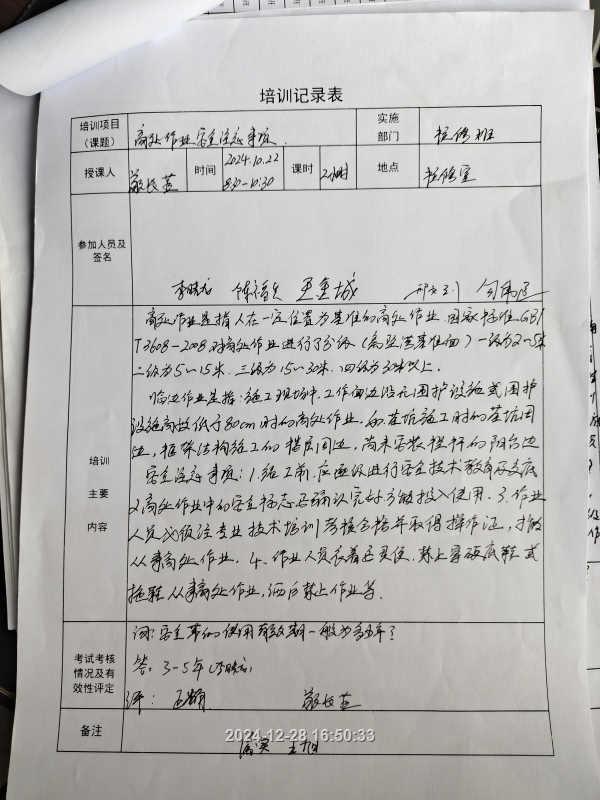 培训记录表
培训项目（课题） 高处作业安全注意事项. 实施部门 检修班
授课人 时间 2024.10.22 8:30-10:30 课时 2小时 地点 检修室
参加人员及签名
高处作业是指人在一定位置为基准的高处作业. 国家标准GB/
T3608-2008对高处作业进行了分级 一级为2~5米
二级为5~15米. 三级为15~30米. 四级为30米以上.
临边作业是指: 施工现场中, 工作面边沿无围护设施或围护
设施高度低于80cm时的高处作业, 如基坑施工时的基坑周
边, 框架结构施工的楼层周边, 尚未安装栏杆的阳台边
培训主要内容
安全注意事项: 1. 施工前, 应逐级进行安全技术教育及交底
2高处作业中的安全标志 确认完好方能投入使用. 3. 作业
人员必须经专业技术培训考核合格并取得操作证, 才能
从事高处作业, 4. 作业人员衣着要灵便, 禁止穿硬底鞋或
拖鞋从事高处作业, 酒后禁止作业等.
考试考核情况及有效性评定
问: 安全带的使用有效期一般为多少年?
答: 3-5年
评:
备注
2024-12-28 16:50:33